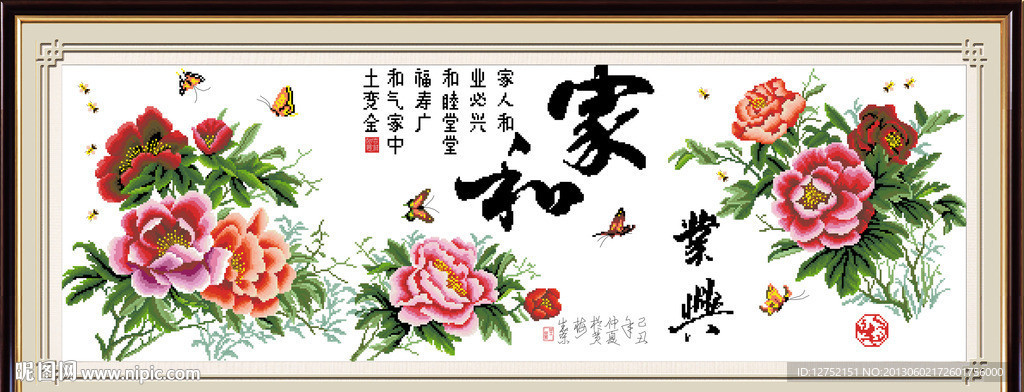 家和
業興
家人和
业必兴
和睦堂堂
福寿广
和气家中
土变金
己丑
年
仲夏
昵图网 www.nipic.com
ID:12752151 NO:20130602172601756000